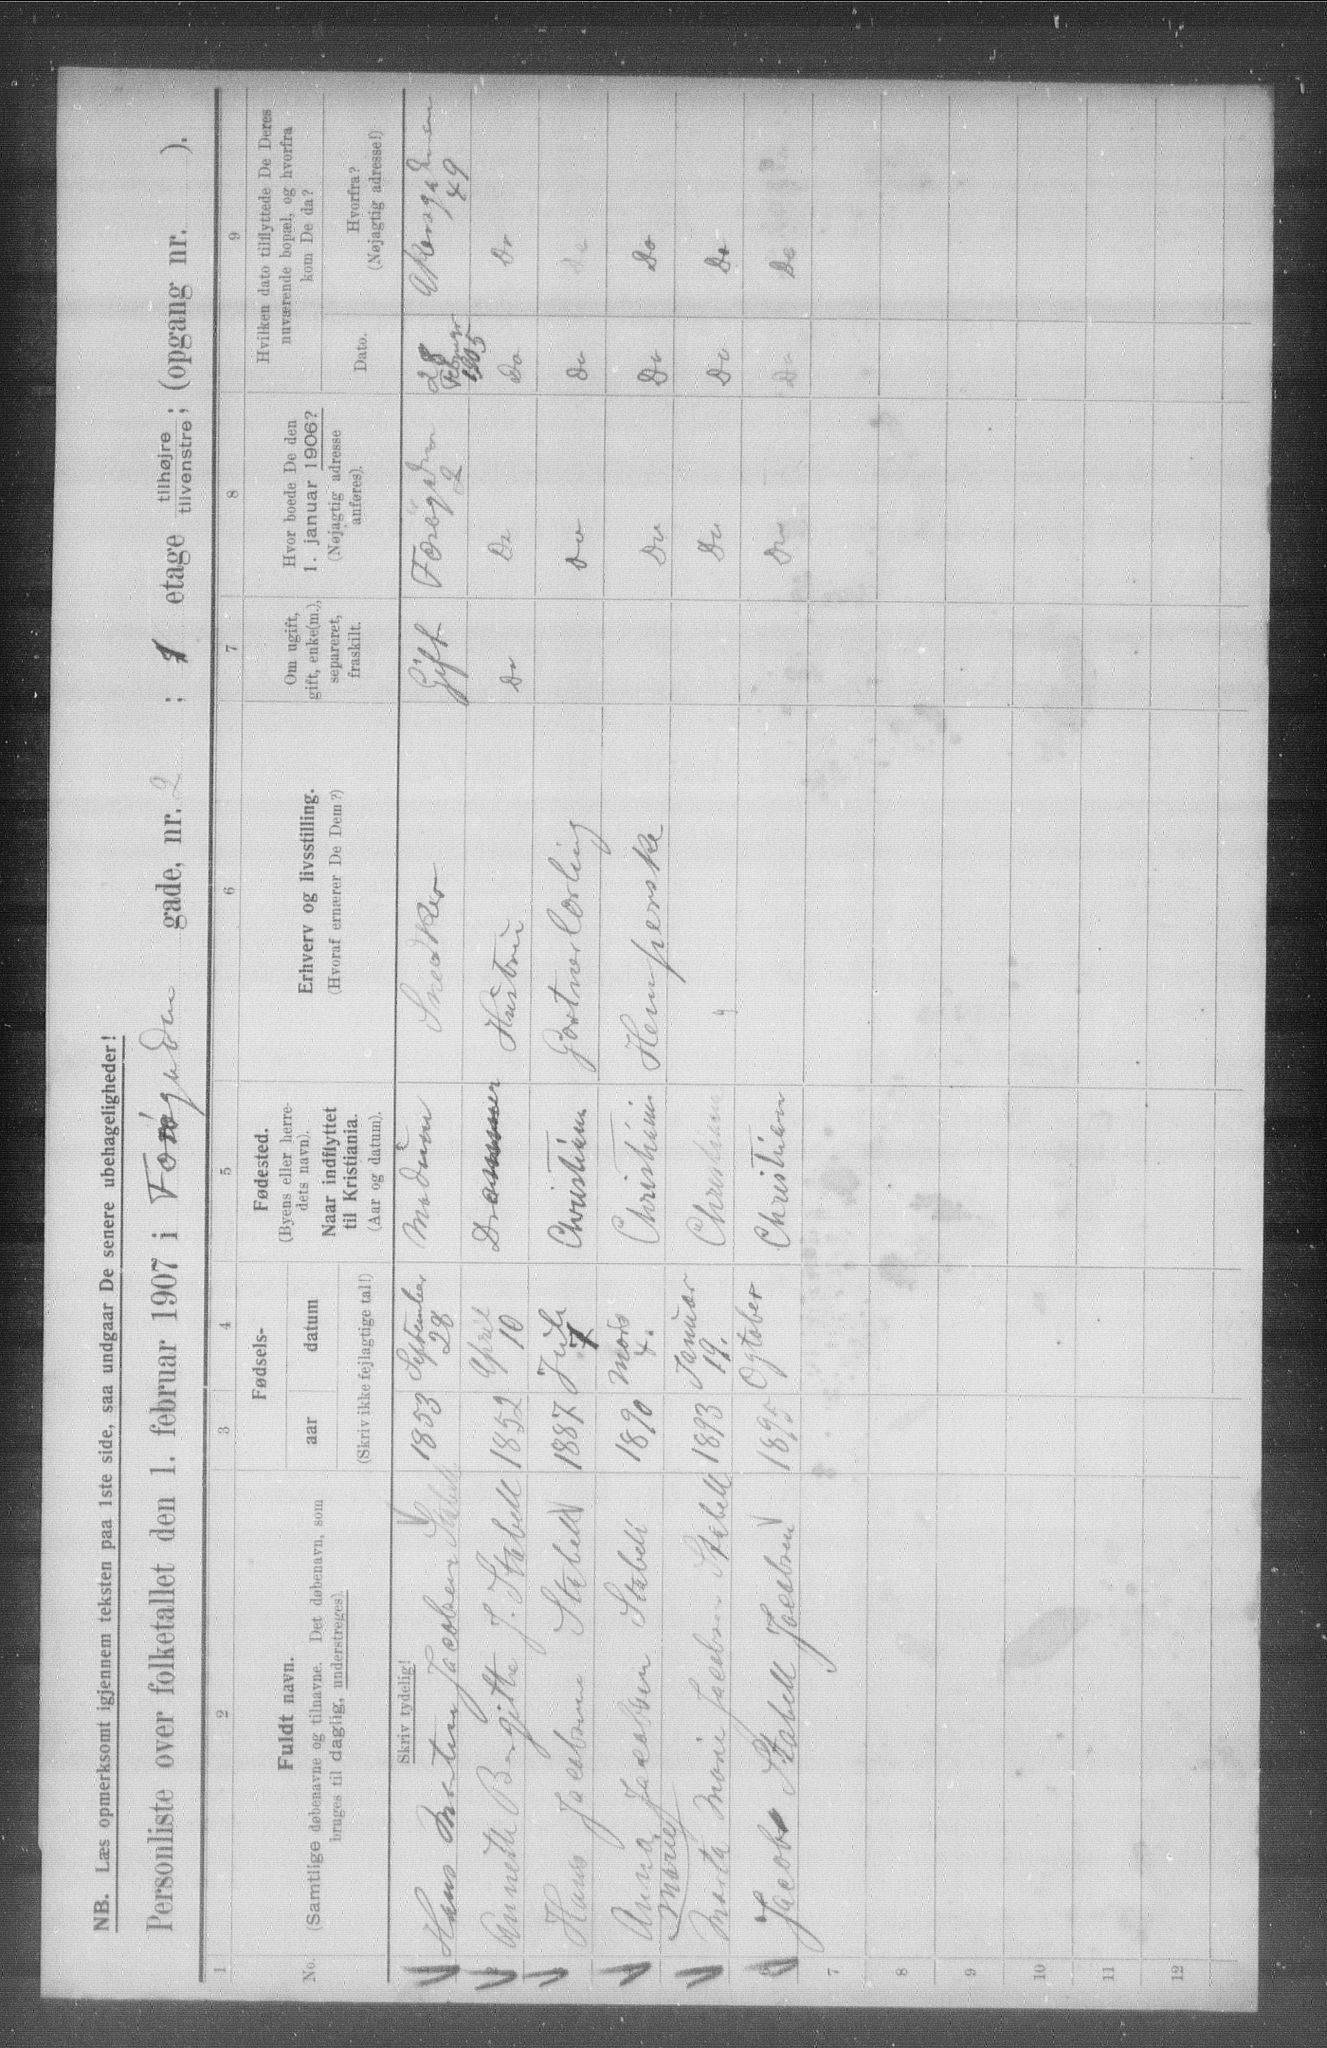 NB. Læs opmerksomt igjennem teksten paa 1ste side, saa undgaar De senere ubehageligheder!
Personliste over folketallet den 1. februar 1907 i gade, nr. 2 ; 1 etage tilhøjre tilvenstre; (opgang nr. ).
1 2 3 4 5 6 7 8 9
No.
Fuldt navn.
(Samtlige døbenavne og tilnavne. Det døbenavn, som
bruges til daglig, understreges).
Fødsels-
aar datum
(Skriv ikke fejlagtige tal!)
Fødested.
(Byens eller herre-
dets navn).
Naar indflyttet
til Kristiania.
(Aar og datum).
Erhverv og livsstilling.
(Hvoraf ernærer De Dem?)
Om ugift,
gift, enke(m.),
separeret,
fraskilt.
Hvor boede De den
1. januar 1906?
(Nøjagtig adresse
anføres).
Hvilken dato tilflyttede De Deres
nuværende bopæl, og hvorfra
kom De da?
Dato.
Hvorfra?
(Nøjagtig adresse!)
Skriv tydelig!
Hans Martin Jacobsen Stabell 1853 September 28 Modum Snedker Gift 2 28 Februar 1905 Akersgaden 49
Annette Bergitte J. Stabell 1852 April 10 Drammen Hustru Do Do Do Do
Hans Jacobsen Stabell 1887 Juli 7 Christiania Gartnerlærling Do Do Do
Anna Marie Jacobsen Stabell 1890 Mars 4. Christiania Do Do Do
Marta Marie Jacobsen Stabell 1893 Januar 19. Christiania " Do Do Do
6 Jacob Stabell Jacobsen 1895 Ogtober Christian Do Do Do
7
8
9
10
11
12